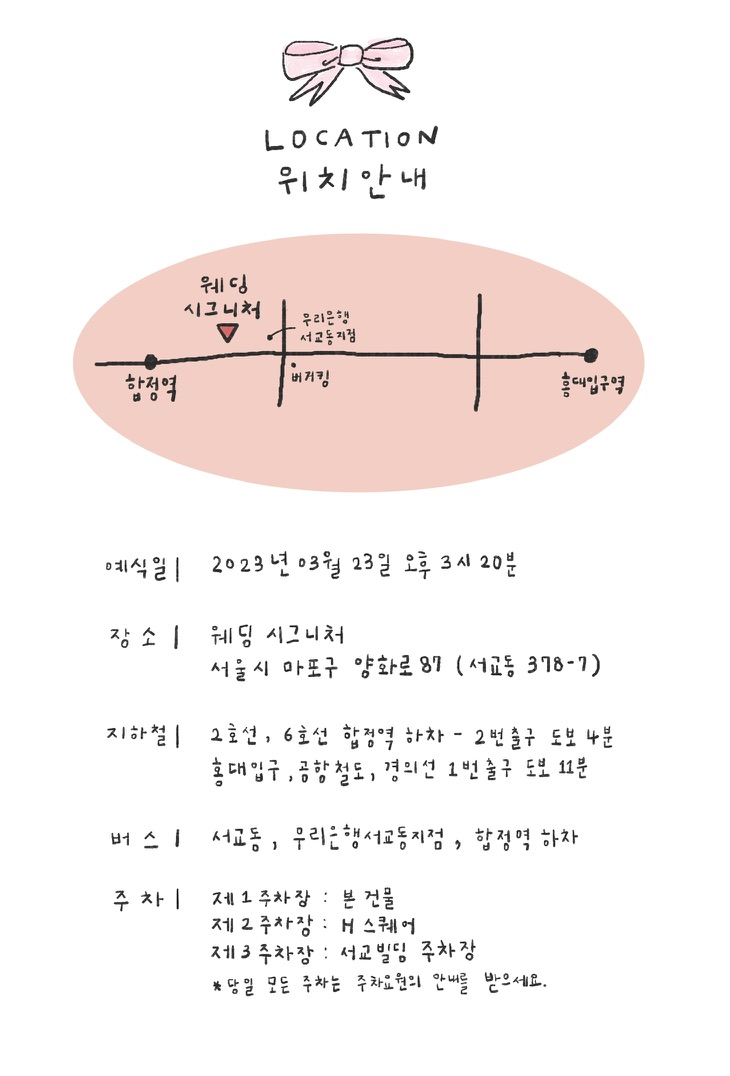 LOCATION
위치안내
웨딩
시그니처
우리은행
서교동지점
합정역
버거킹
홍대입구역
예식일| 2023년 03월 23일 오후 3시 20분
장소| 웨딩 시그니처
서울시 마포구 양화로 87 (서교동 378-7)
지하철| 2호선, 6호선 합정역 하차 - 2번출구 도보 4분
홍대입구, 공항철도, 경의선 1번출구 도보 11분
버스| 서교동, 우리은행서교동지점, 합정역 하차
주차| 제1주차장 : 본 건물
제2주차장 : H 스퀘어
제3주차장 : 서교빌딩 주차장
*당일 모든 주차는 주차요원의 안내를 받으세요.